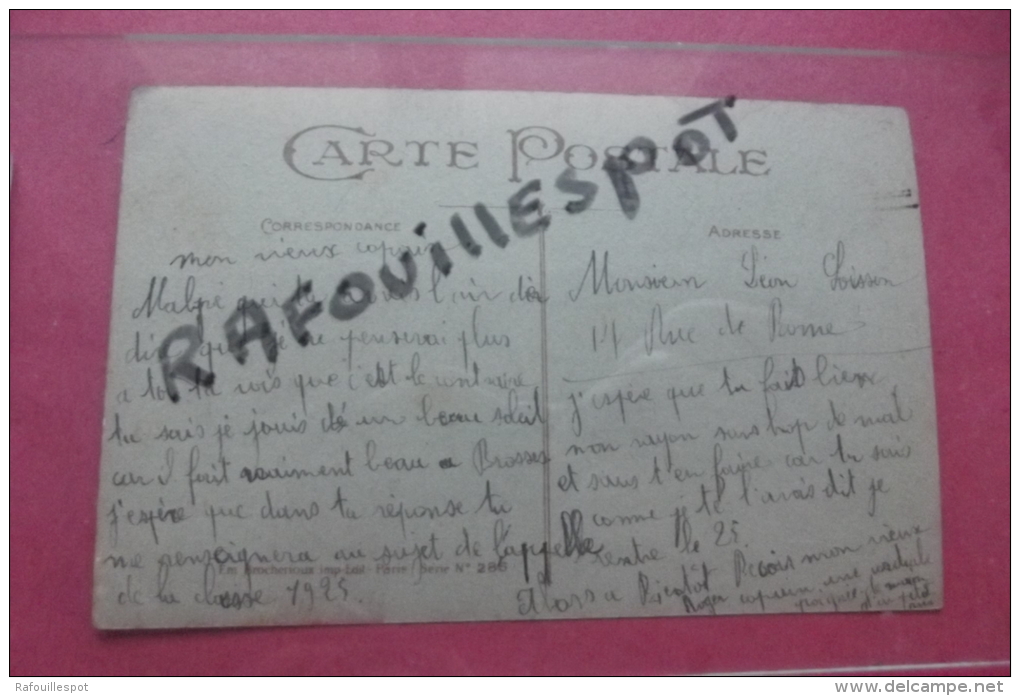 CARTE POSTALE
RAFOUILLESPOT
CORRESPONDANCE
mon vieux copain
Malgré que tu l'air de
dire que je ne penserai plus
a toi tu vois que c'est le contraire
tu sais je jouis dé un beau soleil
car il fait vraiment beau a Brosses
j'espère que dans ta réponse tu
me renseignera au sujet de l'appelle
de la classe 1925.
Em. Rocherioux imp-Edit. Paris Série N° 286
ADRESSE
Monsieur Léon Loisson
14 Rue de Rome
j'espère que tu fait bien
mon rayon sans trop de mal
et sans t'en faire car tu sais
comme je te l'avais dit je
rentre le 25.
Alors a Bientôt Recois mon vieux
copain une cordiale
poignée de main
Roger
Rafouillespot
www.delcampe.net